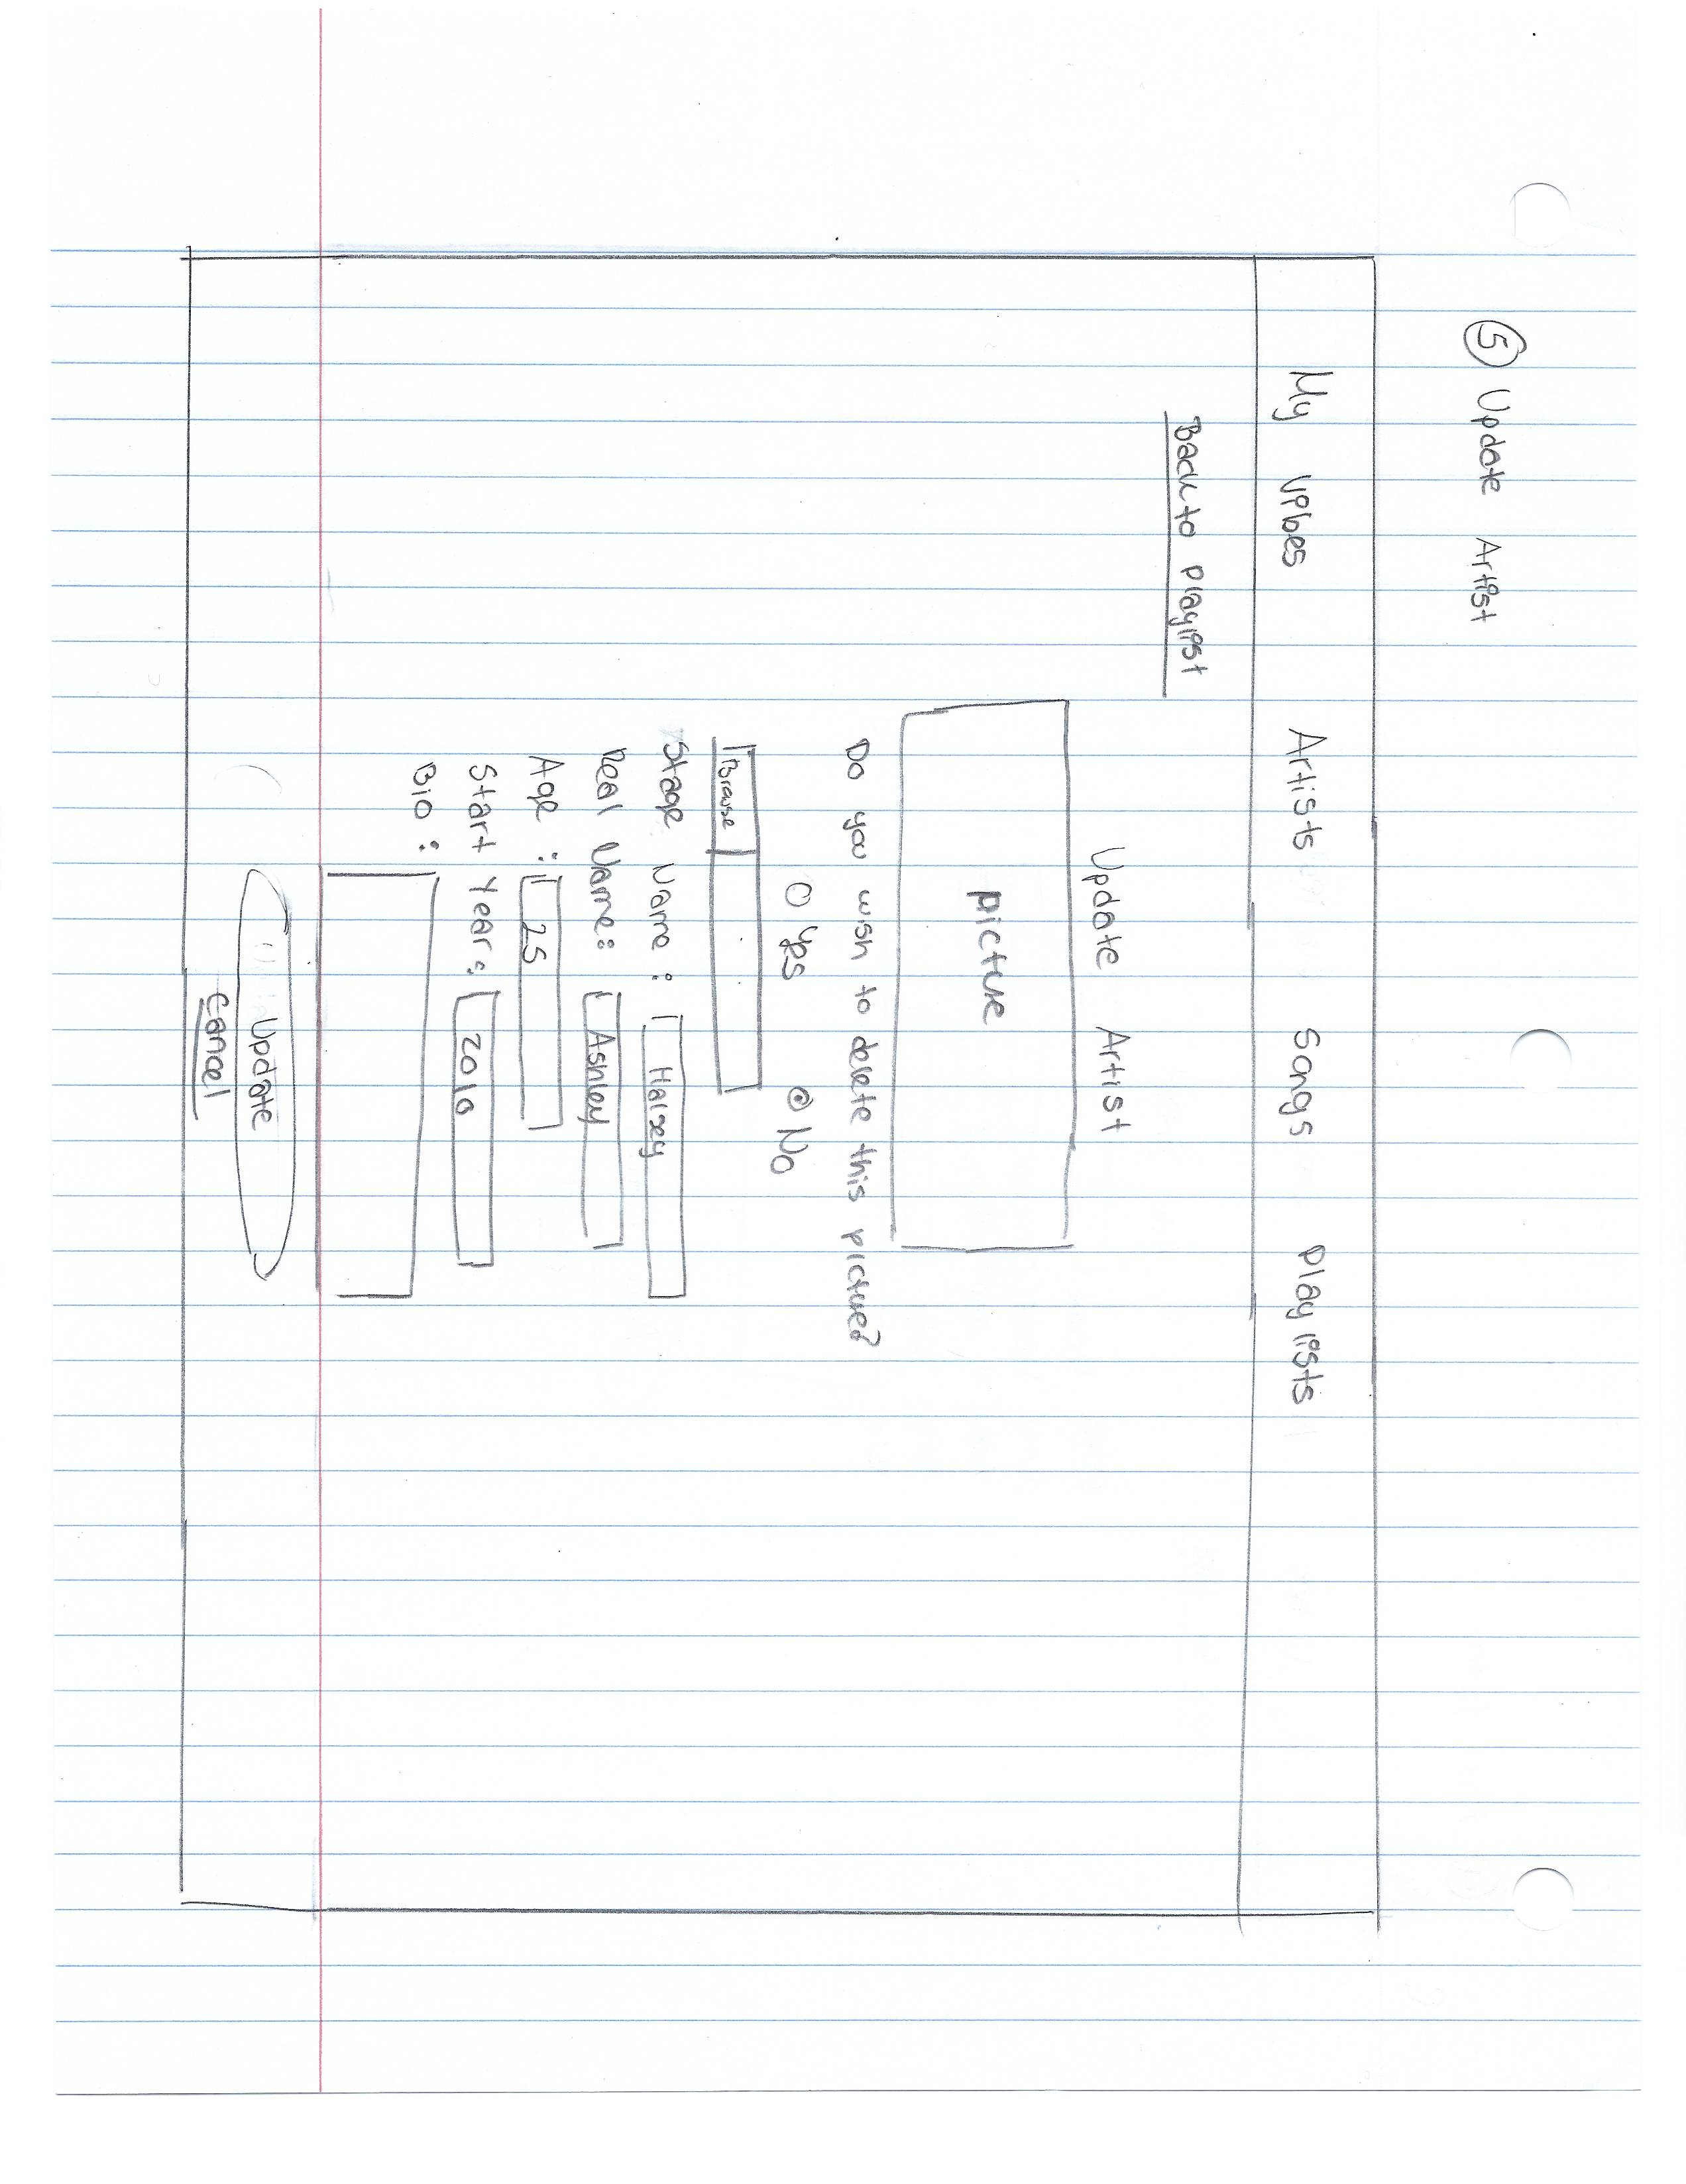 5 Update Artist
My Vibes Artists Songs Playlists
Back to Playlist
Update Artist
picture
Do you wish to delete this picture?
Yes No
Browse
Stage Name : Halsey
Real Name: Ashley
Age : 25
Start Year: 2010
Bio :
Update
Cancel